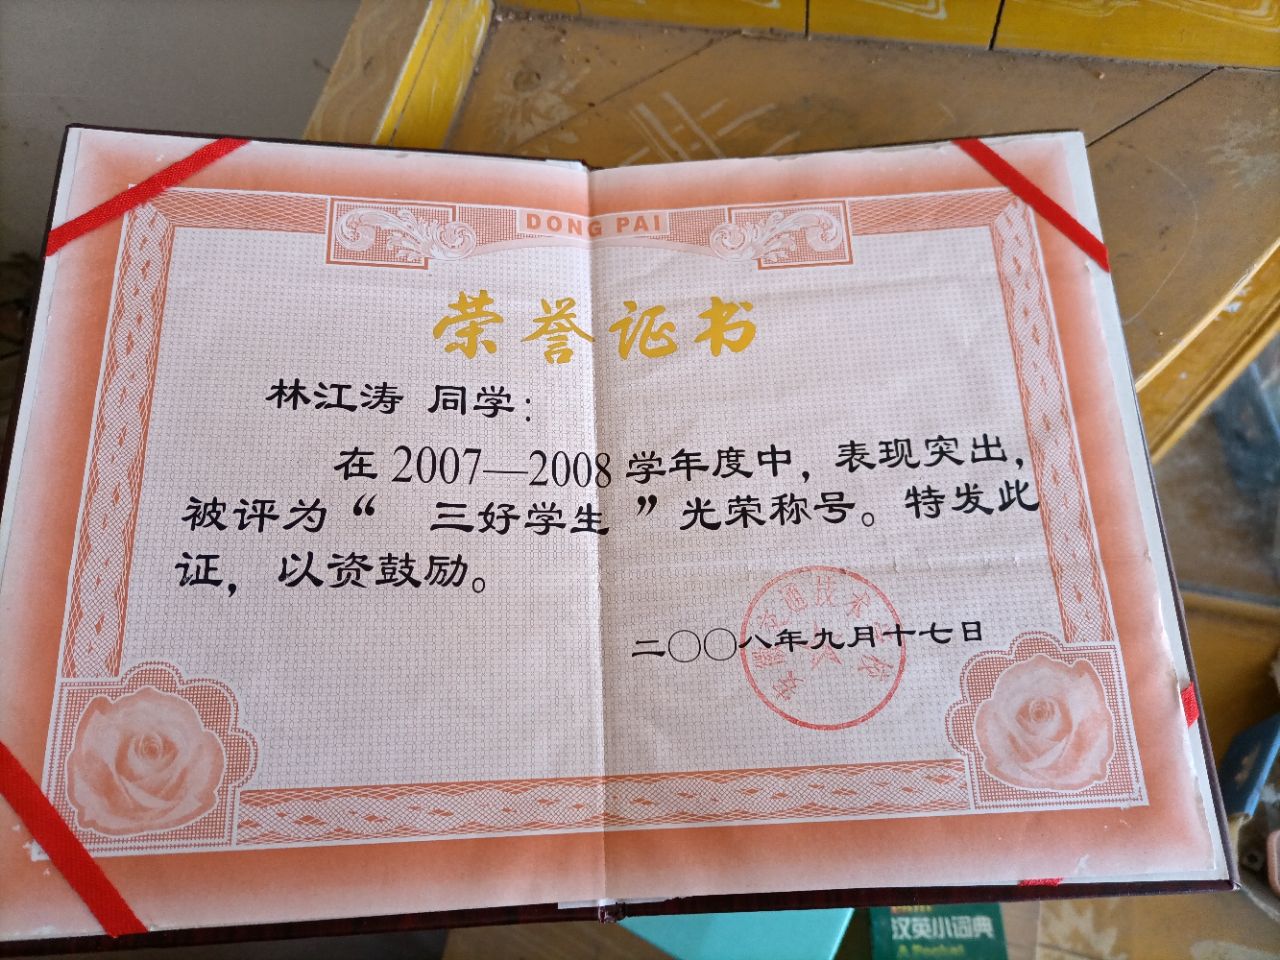 DONG PAI
荣誉证书
林江涛 同学：
在 2007—2008 学年度中，表现突出，
被评为“ 三好学生 ”光荣称号。特发此
证，以资鼓励。
二〇〇八年九月十七日
汉英小词典
A Pocket